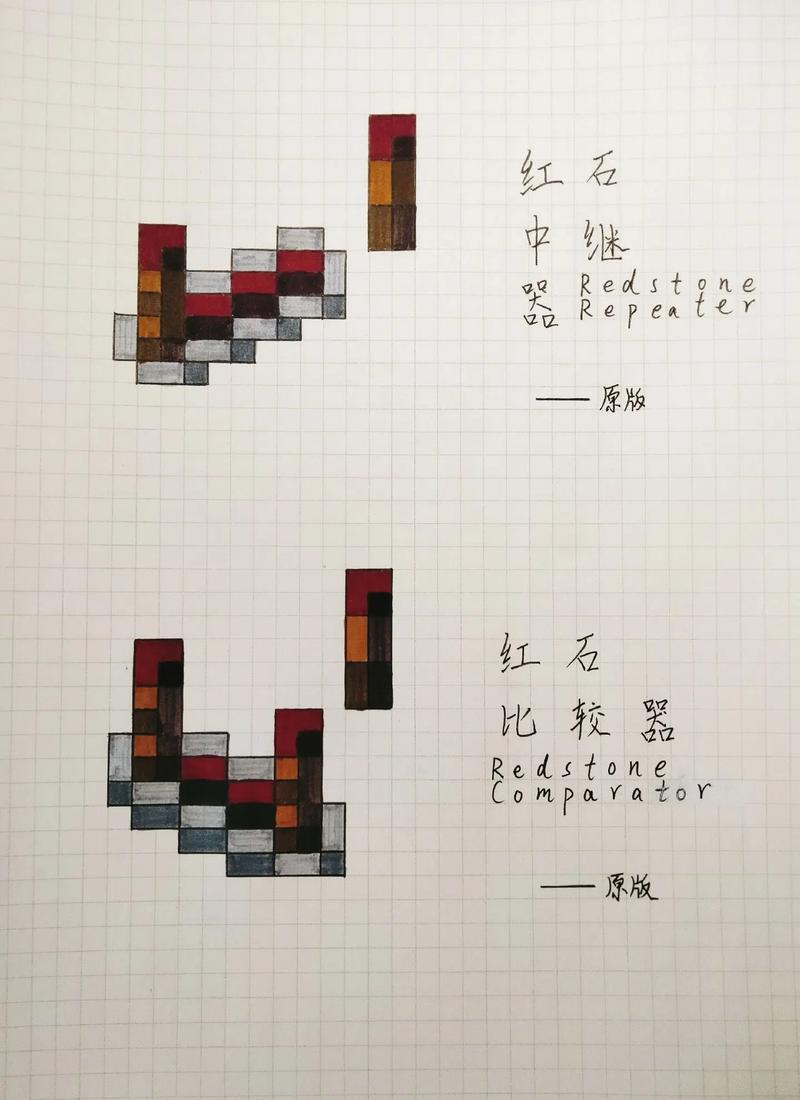 红石
中继
器 Redstone
Repeater
——原版
红石
比较器
Redstone
Comparator
——原版